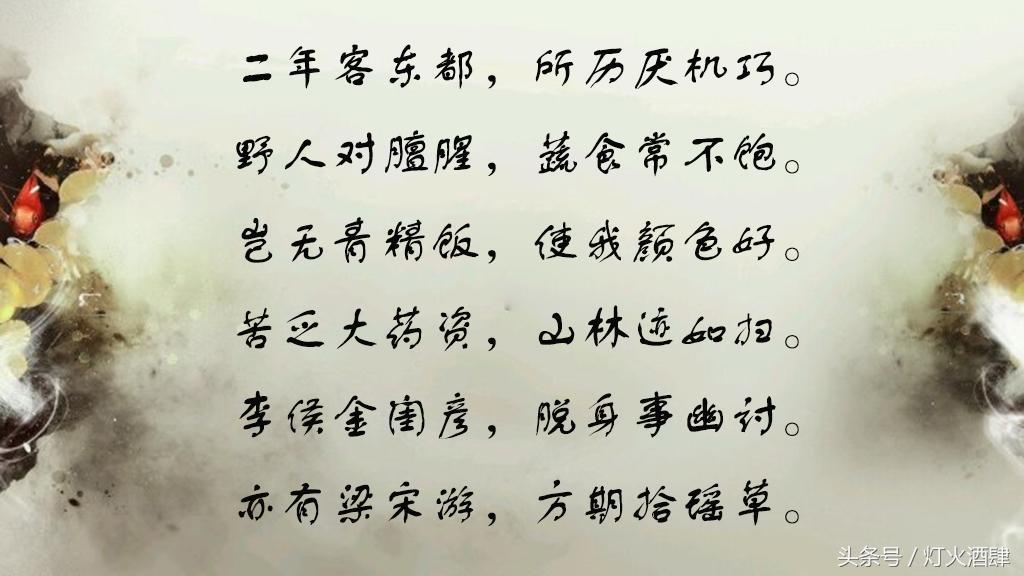 二年客东都，所历厌机巧。
野人对膻腥，蔬食常不饱。
岂无青精饭，使我颜色好。
苦乏大药资，山林迹如扫。
李侯金闺彦，脱身事幽讨。
亦有梁宋游，方期拾瑶草。
头条号 / 灯火酒肆